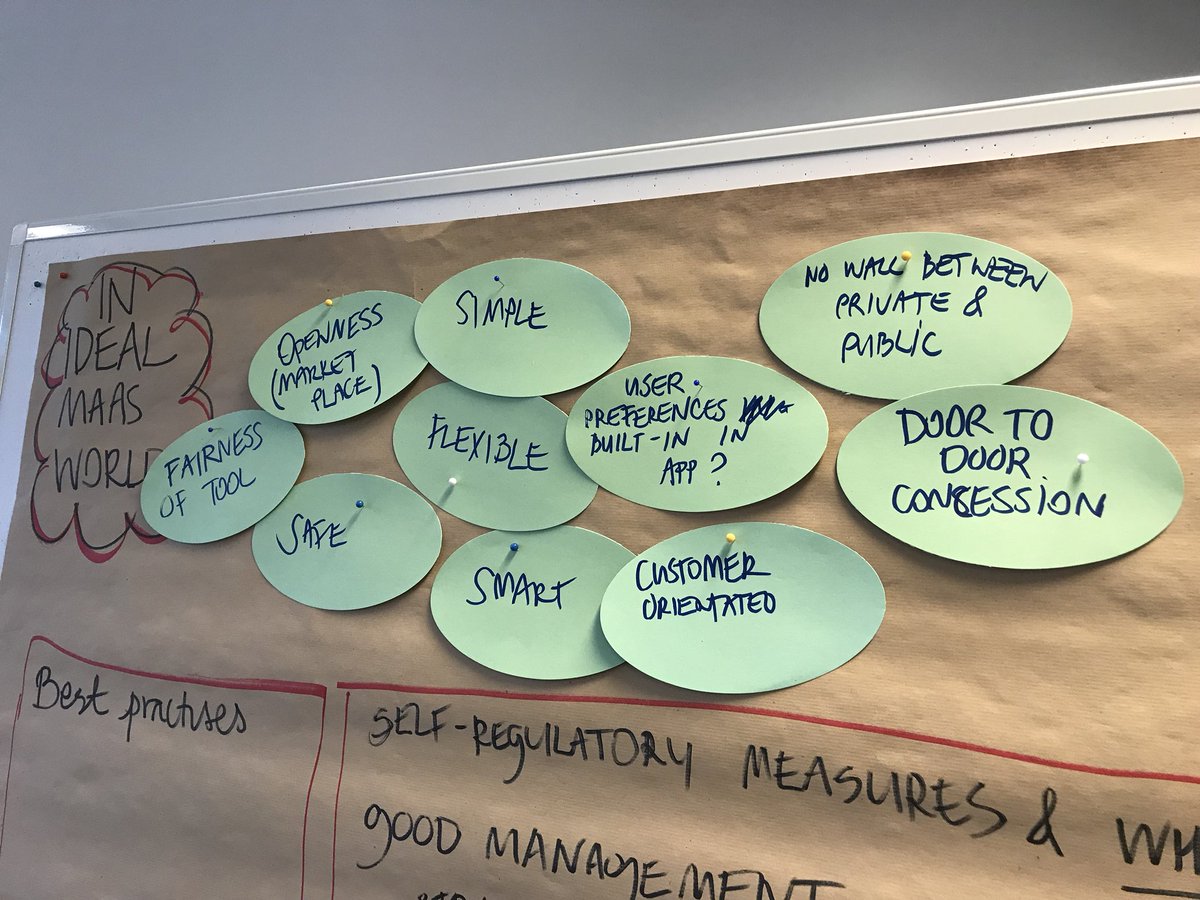 IN
IDEAL
MAAS
WORLD
OPENNESS
(MARKET
PLACE)
SIMPLE
NO WALL BETWEEN
PRIVATE &
PUBLIC
FAIRNESS
OF TOOL
FLEXIBLE
USER
PREFERENCES
BUILT-IN IN
APP?
DOOR TO
DOOR
CONSESSION
SAFE
SMART
CUSTOMER
ORIENTATED
Best practises
SELF-REGULATORY MEASURES & WH
GOOD MANAGEMENT